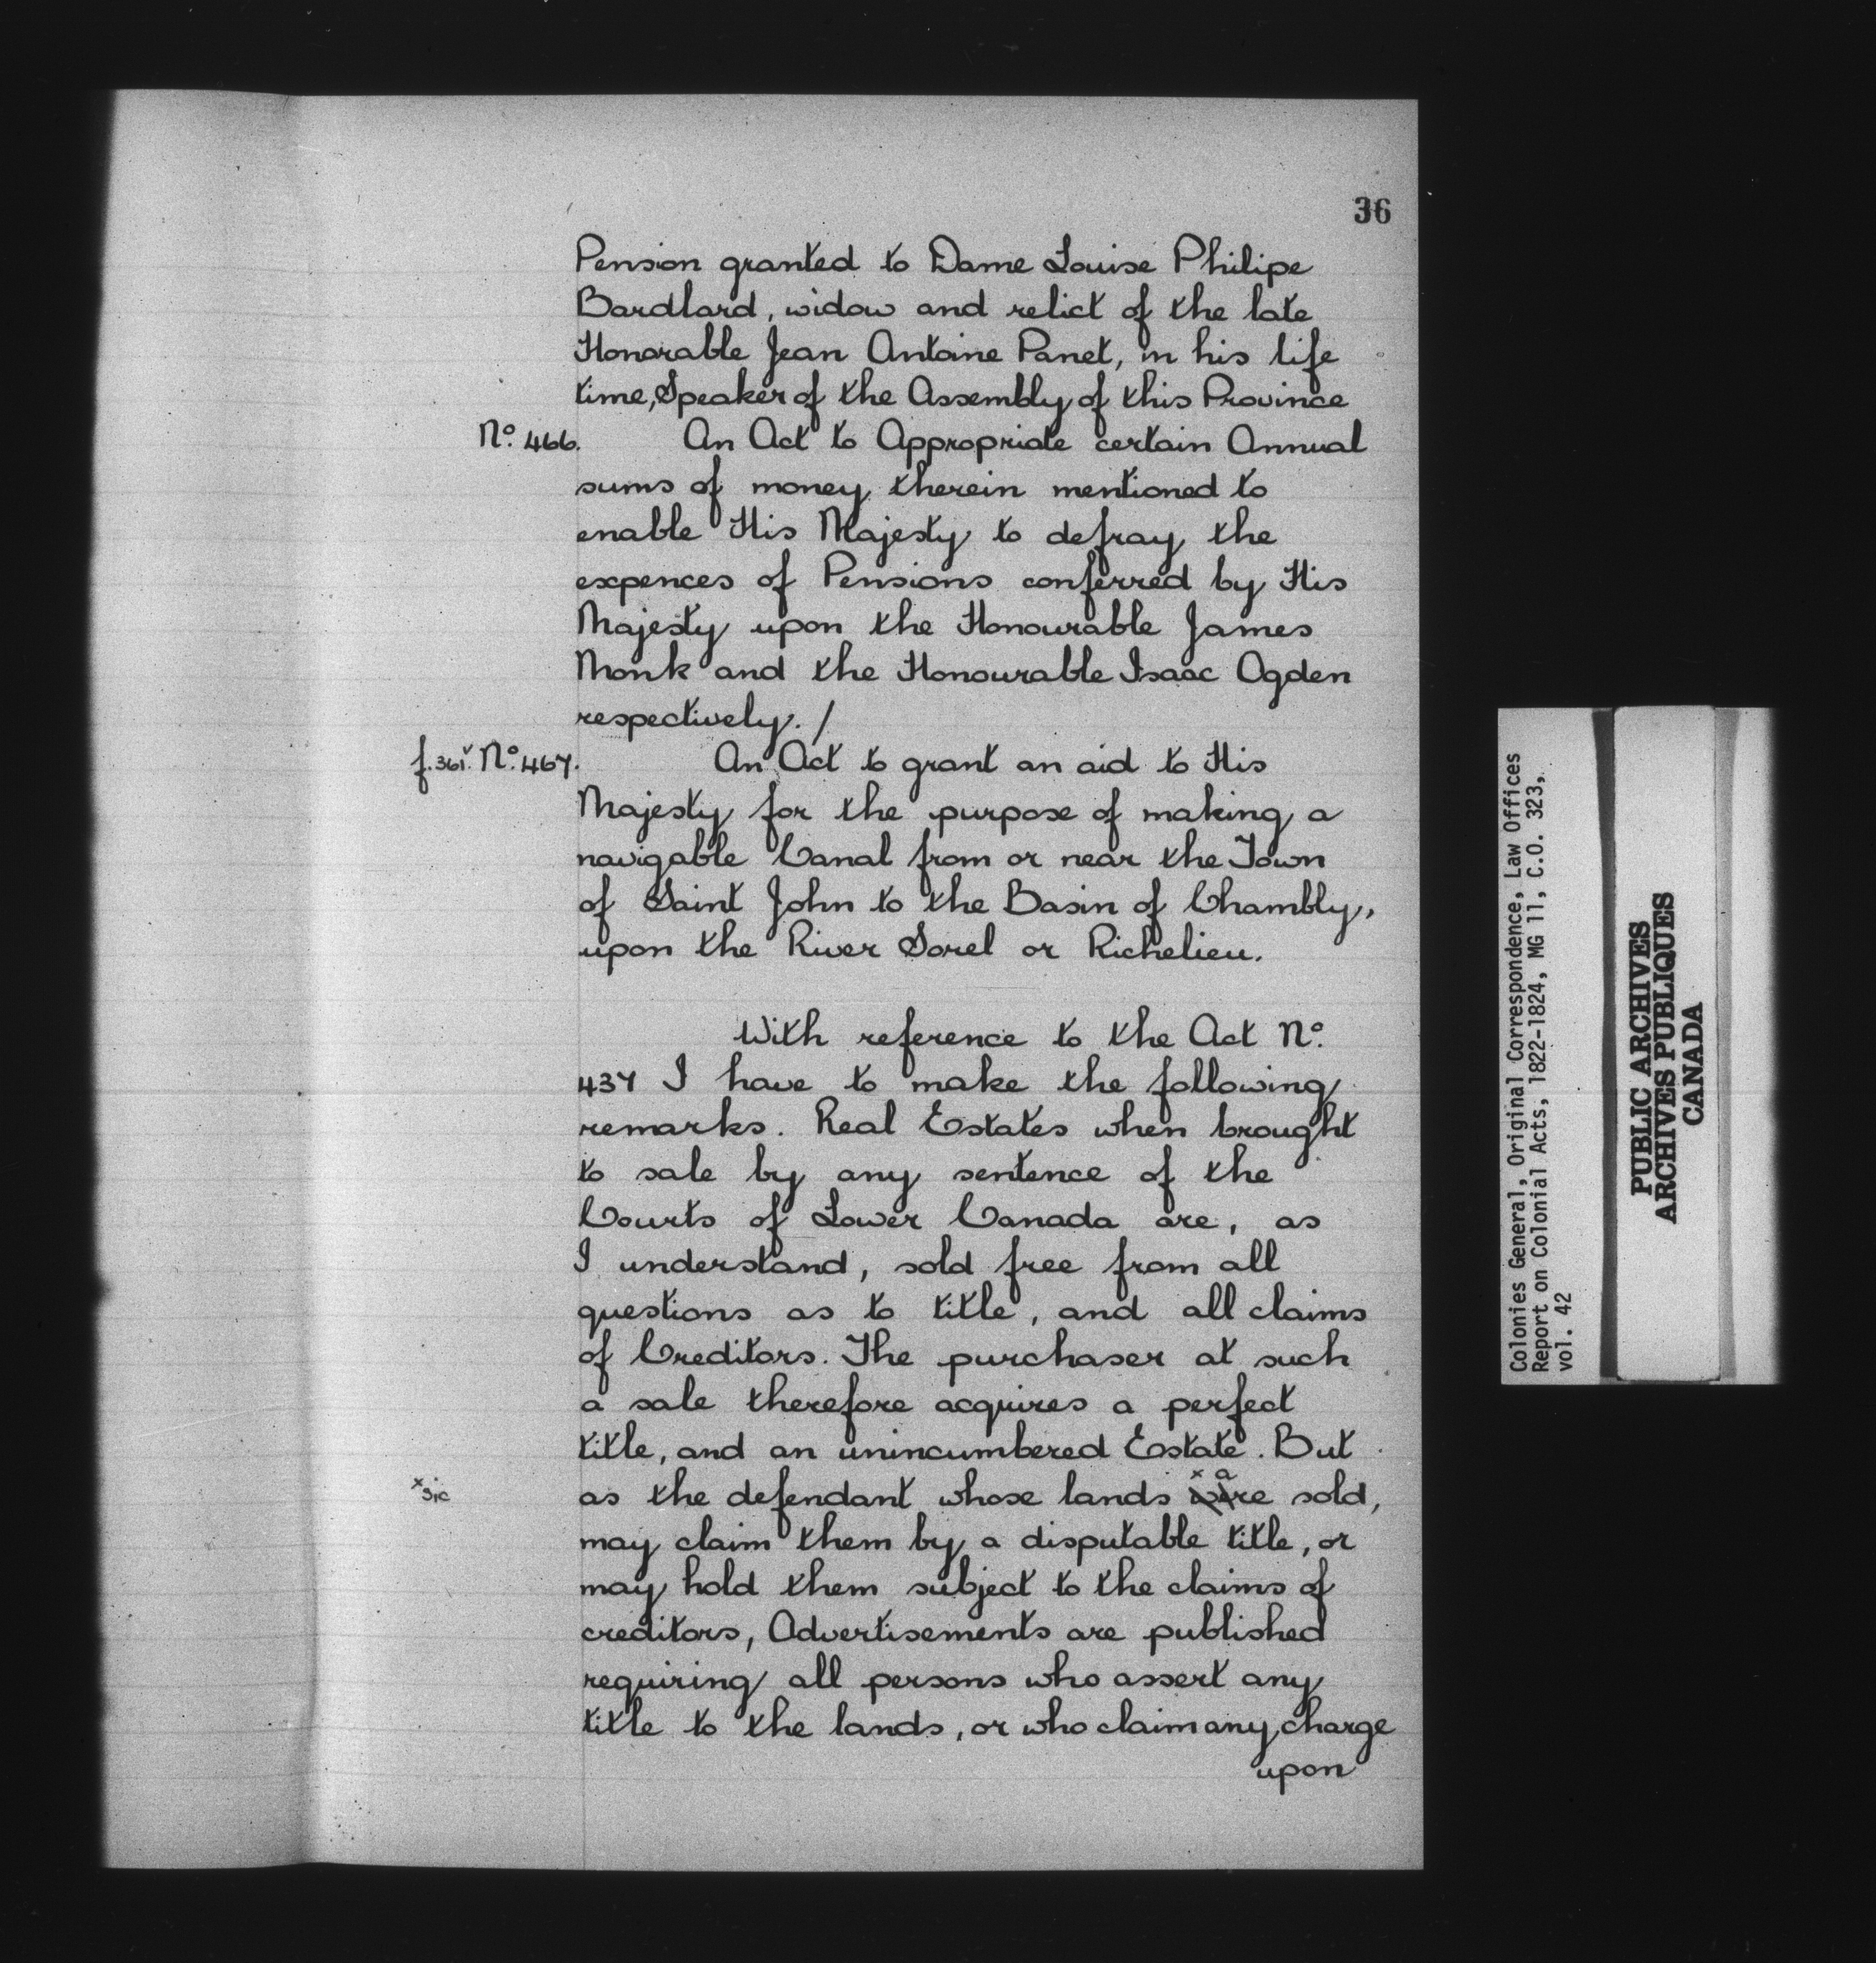 36
Pension granted to Dame Louise Philipe
Bardlard, widow and relict of the late
Honorable Jean Antoine Panet, in his life
time, Speaker of the Assembly of this Province
No. 466. An Act to Appropriate certain Annual
sums of money therein mentioned to
enable His Majesty to defray the
expences of Pensions conferred by His
Majesty upon the Honourable James
Monk and the Honourable Isaac Ogden
respectively. /
f. 361. v No. 467. An Act to grant an aid to His
Majesty for the purpose of making a
navigable Canal from or near the Town
of Saint John to the Basin of Chambly,
upon the River Sorel or Richelieu.
With reference to the Act No.
437 I have to make the following
remarks. Real Estates when brought
to sale by any sentence of the
Courts of Lower Canada are, as
I understand, sold free from all
questions as to title, and all claims
of Creditors. The purchaser at such
a sale therefore acquires a perfect
title, and an unincumbered Estate. But
x sic as the defendant whose lands x are sold,
may claim them by a disputable title, or
may hold them subject to the claims of
creditors, Advertisements are published
requiring all persons who assert any
title to the lands, or who claim any charge
upon
Colonies General, Original Correspondence, Law Offices
Report on Colonial Acts, 1822-1824, MG 11, C.O. 323,
vol. 42
PUBLIC ARCHIVES
ARCHIVES PUBLIQUES
CANADA